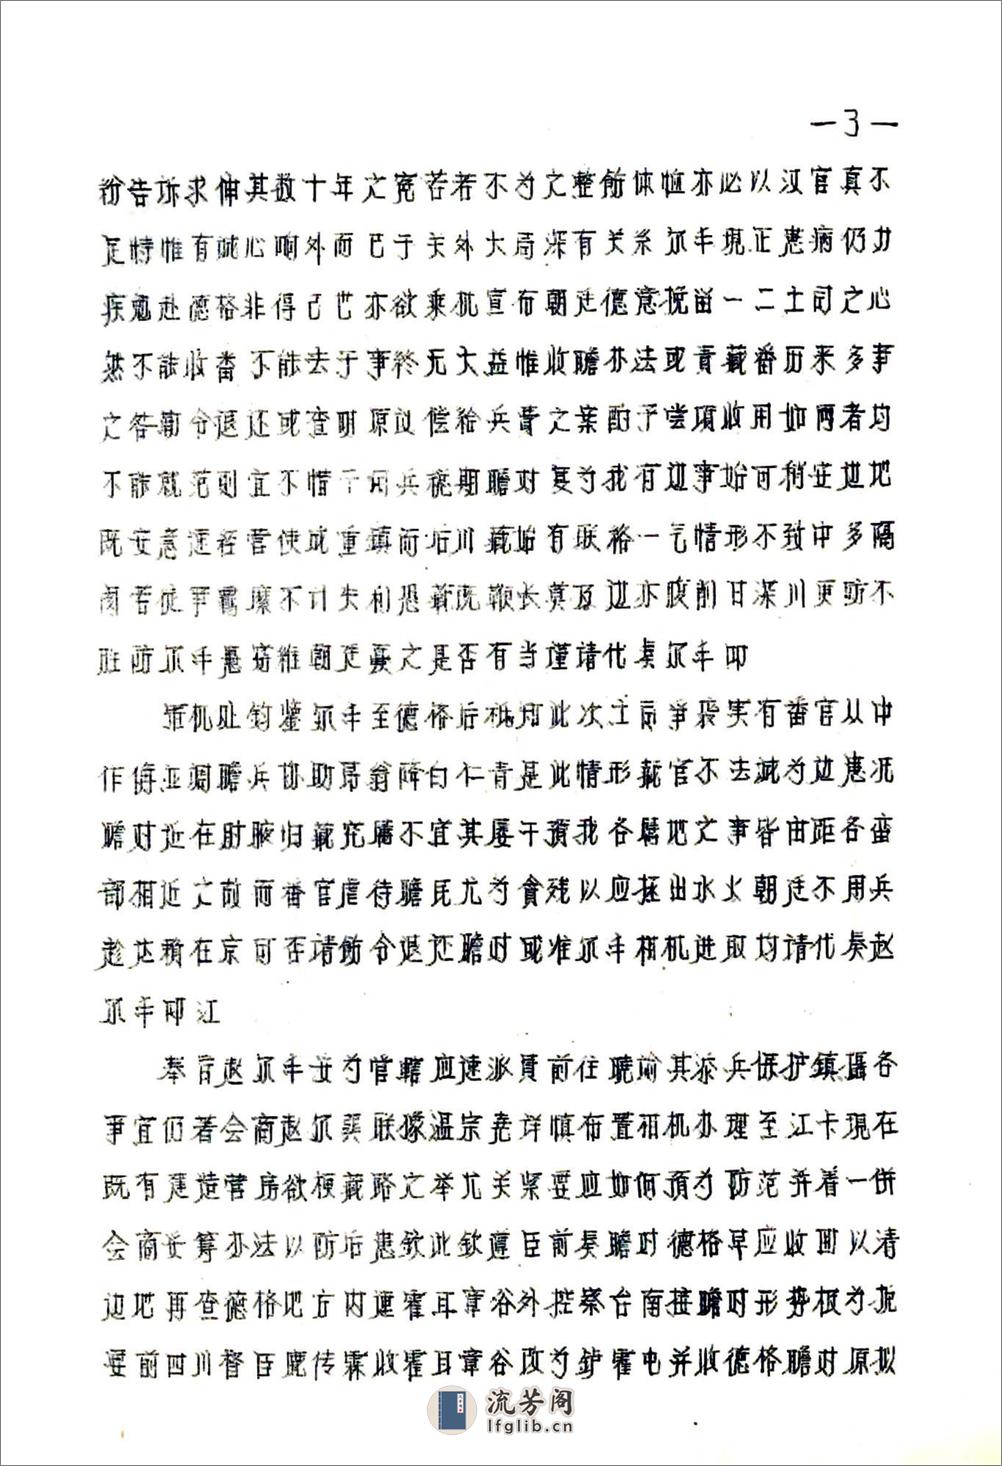 —3—
纷告诉求伸其数十年之冤苦若不为之整饬体恤亦必以汉官真不
足恃惟有诚心响外而已于关外大局深有关系尔丰现正患病仍力
疾勉赴德格非得已也亦欲乘机宣布朝廷德意挽留一二土司之心
然不能收番不能去于事终无大益惟收瞻办法或责藏番历来多事
之咎勒令退还或查明原议偿给兵费之案酌予尝项收用如两者均
不能就范则宜不惜干戈兵稜期瞻对复为我有边事始可稍安边地
既安急速经营使成重镇而后川藏始有联络一气情形不致中多隔
阂若徒事羁縻不计失利恐藏既鞭长莫及边亦腹削日深川更防不
胜防尔丰愚窃维朝廷裁之是否有当谨请代奏尔丰叩
军机处钧鉴尔丰至德格后机知此次土司争袭实有番官从中
作侍并调瞻兵协助昂翁降白仁青是此情形藏官不法诚为边患况
瞻对近在肘腋归藏究属不宜其屡干预我各属地之事皆由距各蛮
部相近之故而番官虐待瞻民尤为贪残以应拯出水火朝廷不用兵
趁达赖在京可否请饬令退还瞻对或准尔丰相机进取均请代奏赵
尔丰叩江
奉旨赵尔丰妥为管辖应速派员前往晓谕其添兵保护镇摄各
事宜仍著会商赵尔巽联豫温宗尧详慎布置相机办理至江卡现在
既有建造营房欲梗藏路之举尤关紧要应如何预为防范并着一併
会商妥筹办法以防后患钦此钦遵臣前奏瞻对德格早应收回以清
边地再查德格地方内连霍耳章谷外控察台南接瞻对形势极为扼
要前四川督臣鹿传霖收霍耳章谷改为鈩霍屯并收德格瞻对原拟
流芳阁
lfglib.cn